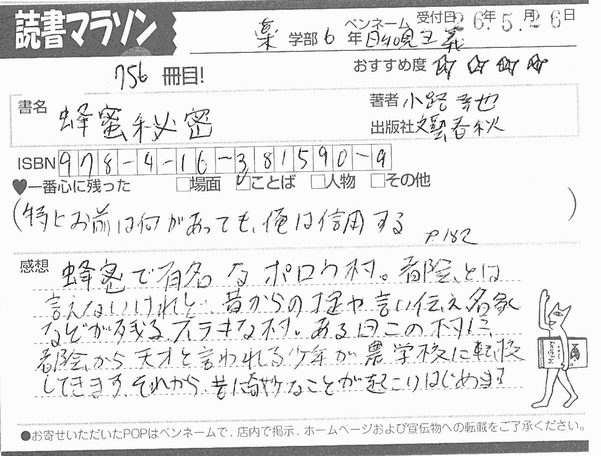 読書マラソン
薬 学部 6 年 ペンネーム 受付日 26年 5.月 26日
756 冊目!
おすすめ度 ☆ ☆ ☆ ☆
書名 蜂蜜秘密
著者 小路幸也
出版社 文藝春秋
ISBN 978-4-16-381590-9
♥一番心に残った □場面 ☑ことば □人物 □その他
(特にお前は何があっても、俺は信用する P.182)
感想 蜂蜜で有名なポロウ村。都会とは
言えないけれど、昔からの掟や言い伝え名家
などが残るステキな村。ある日この村に、
都会から天才と言われる少年が農学校に転校
してきます。それから、奇妙なことが起こりはじめます
●お寄せいただいたPOPはペンネームで、店内で掲示、ホームページおよび宣伝物への転載をご了承ください。